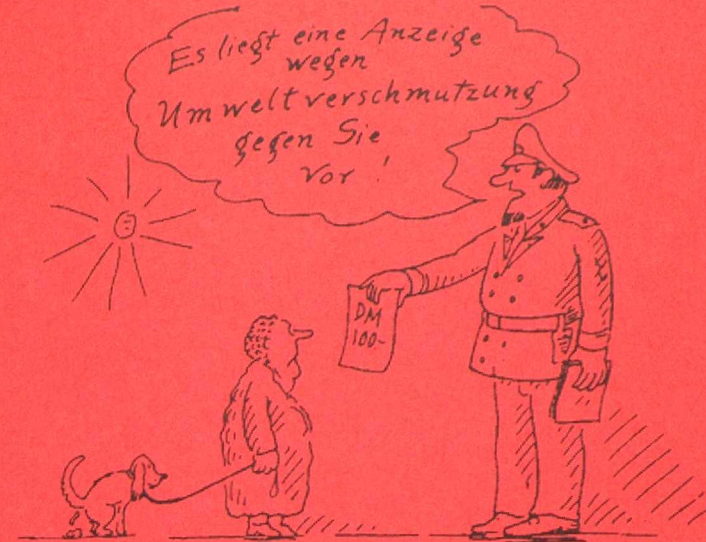 Es liegt eine Anzeige
wegen
Umweltverschmutzung
gegen Sie
vor !
DM
100-